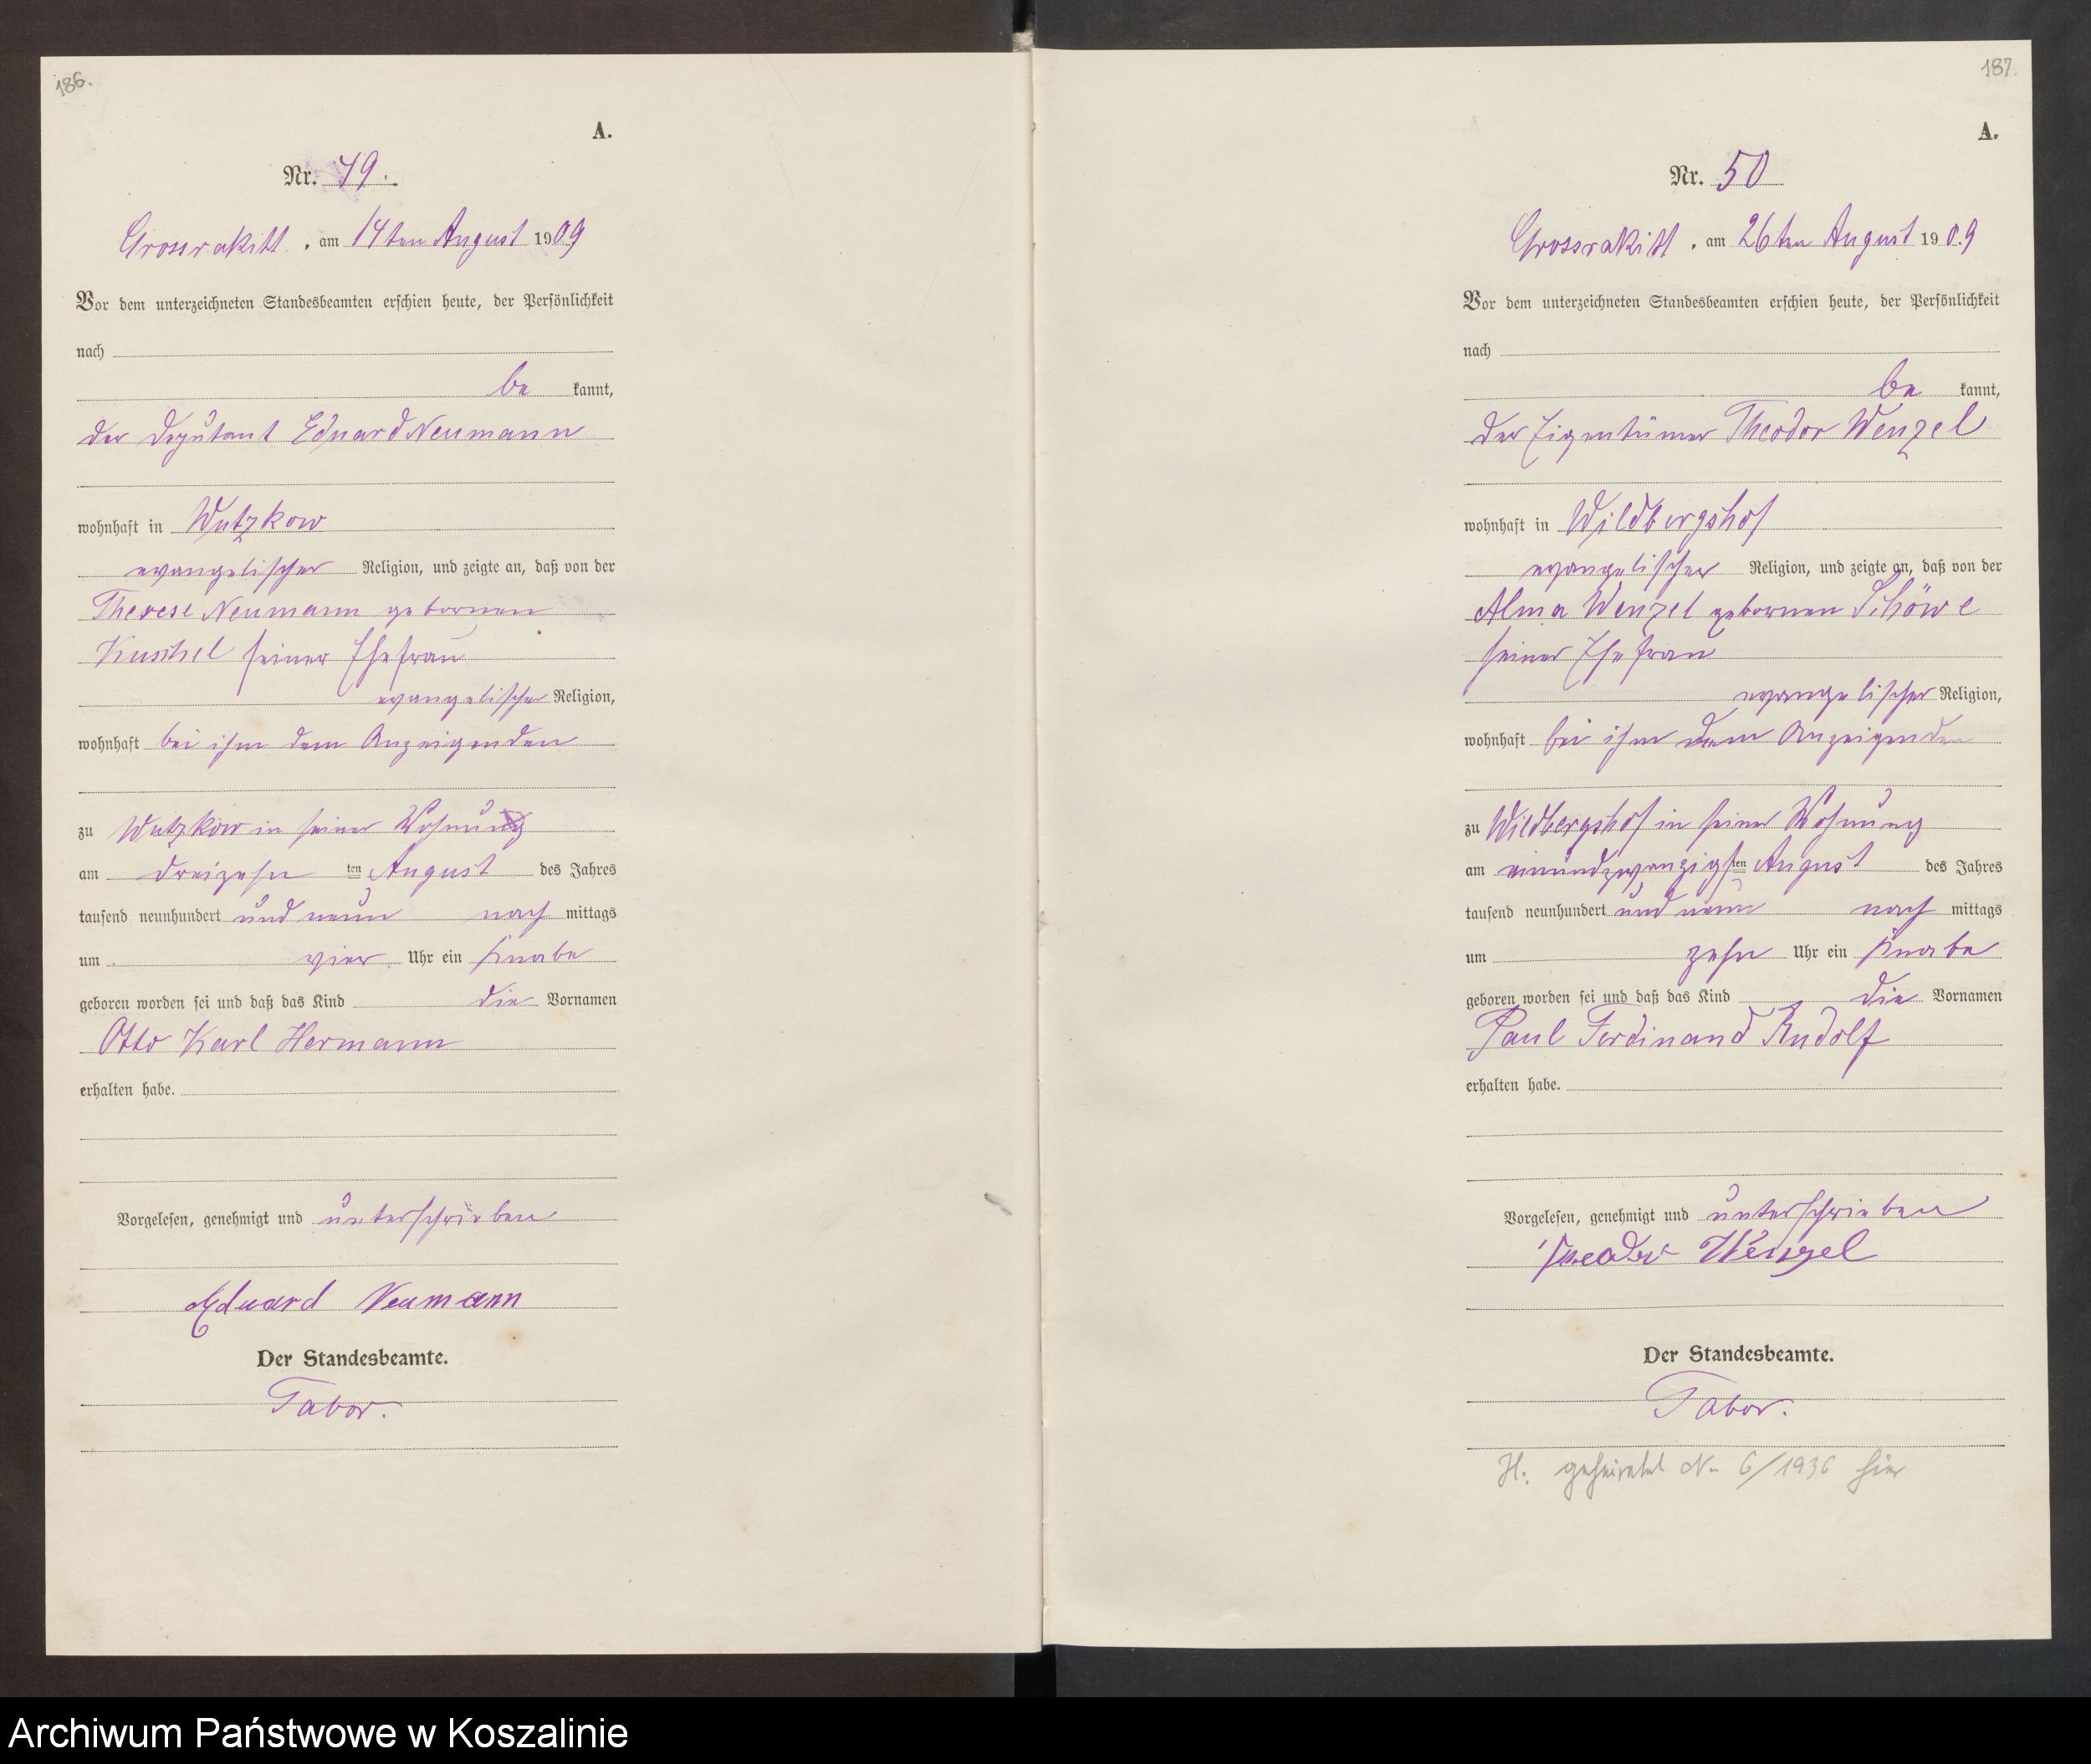 186.
A.
Nr. 49.
Grossrakitt, am 14ten August 1909
Vor dem unterzeichneten Standesbeamten erschien heute, der Persönlichkeit
nach
be kannt,
der Deputant Eduard Neumann
wohnhaft in Wutzkow
evangelischer Religion, und zeigte an, daß von der
Therese Neumann gebornen
Kuschel seiner Ehefrau
evangelischer Religion,
wohnhaft bei ihm dem Anzeigenden
zu Wutzkow in seiner Wohnung
am dreizehn ten August des Jahres
tausend neunhundert und neun nach mittags
um vier Uhr ein Knabe
geboren worden sei und daß das Kind die Vornamen
Otto Karl Hermann
erhalten habe.
Vorgelesen, genehmigt und unterschrieben
Eduard Neumann
Der Standesbeamte.
Tabor.
187.
A.
Nr. 50
Grossrakitt, am 26ten August 1909
Vor dem unterzeichneten Standesbeamten erschien heute, der Persönlichkeit
nach
be kannt,
der Eigentümer Theodor Wenzel
wohnhaft in Wildbergshof
evangelischer Religion, und zeigte an, daß von der
Alma Wenzel gebornen Schöwe
seiner Ehefrau
evangelischer Religion,
wohnhaft bei ihm dem Anzeigenden
zu Wildbergshof in seiner Wohnung
am einundzwanzigsten August des Jahres
tausend neunhundert und neun nach mittags
um zehn Uhr ein Knabe
geboren worden sei und daß das Kind die Vornamen
Paul Ferdinand Rudolf
erhalten habe.
Vorgelesen, genehmigt und unterschrieben
Theodor Wenzel
Der Standesbeamte.
Tabor.
H. geheiratet Nr. 6/1936 hier
Archiwum Państwowe w Koszalinie